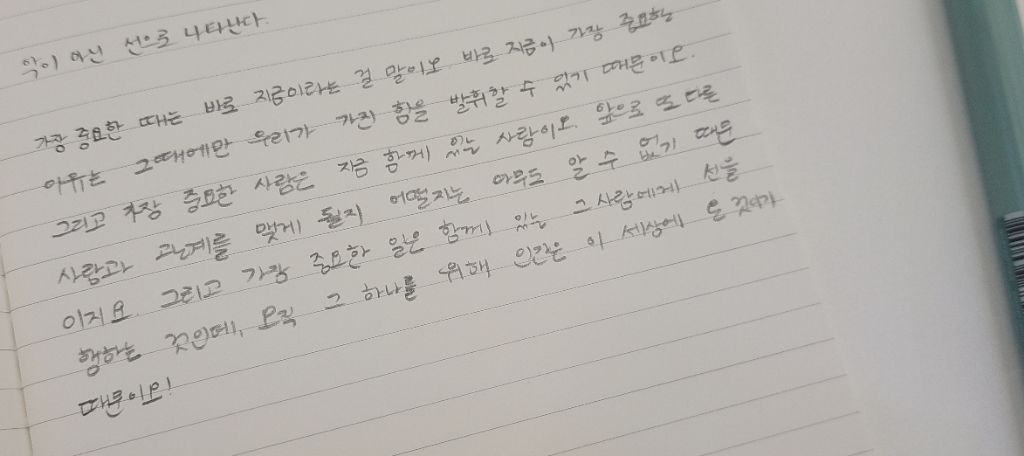 악이 아닌 선으로 나타난다.
가장 중요한 때는 바로 지금이라는 걸 말이오. 바로 지금이 가장 중요한
이유는 그때에만 우리가 가진 힘을 발휘할 수 있기 때문이오.
그리고 가장 중요한 사람은 지금 함께 있는 사람이오. 앞으로 또 다른
사람과 관계를 맺게 될지 어떨지는 아무도 알 수 없기 때문
이지요. 그리고 가장 중요한 일은 함께 있는 그 사람에게 선을
행하는 것인데, 오직 그 하나를 위해 인간은 이 세상에 온 것이기
때문이오!